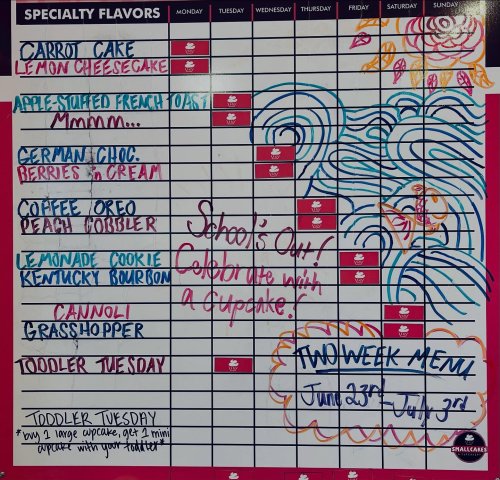 SPECIALTY FLAVORS MONDAY TUESDAY WEDNESDAY THURSDAY FRIDAY SATURDAY SUNDAY
CARROT CAKE
LEMON CHEESECAKE
APPLE-STUFFED FRENCH TOAST
Mmmm...
GERMAN CHOC.
BERRIES n CREAM
COFFEE OREO
PEACH COBBLER
School's Out!
LEMONADE COOKIE
Celebrate with
KENTUCKY BOURBON
a cupcake!
CANNOLI
GRASSHOPPER
TWO WEEK MENU
TODDLER TUESDAY
June 23rd - July 3rd
TODDLER TUESDAY
*buy 1 large cupcake, get 1 mini
cupcake with your toddler*
SMALLCAKES